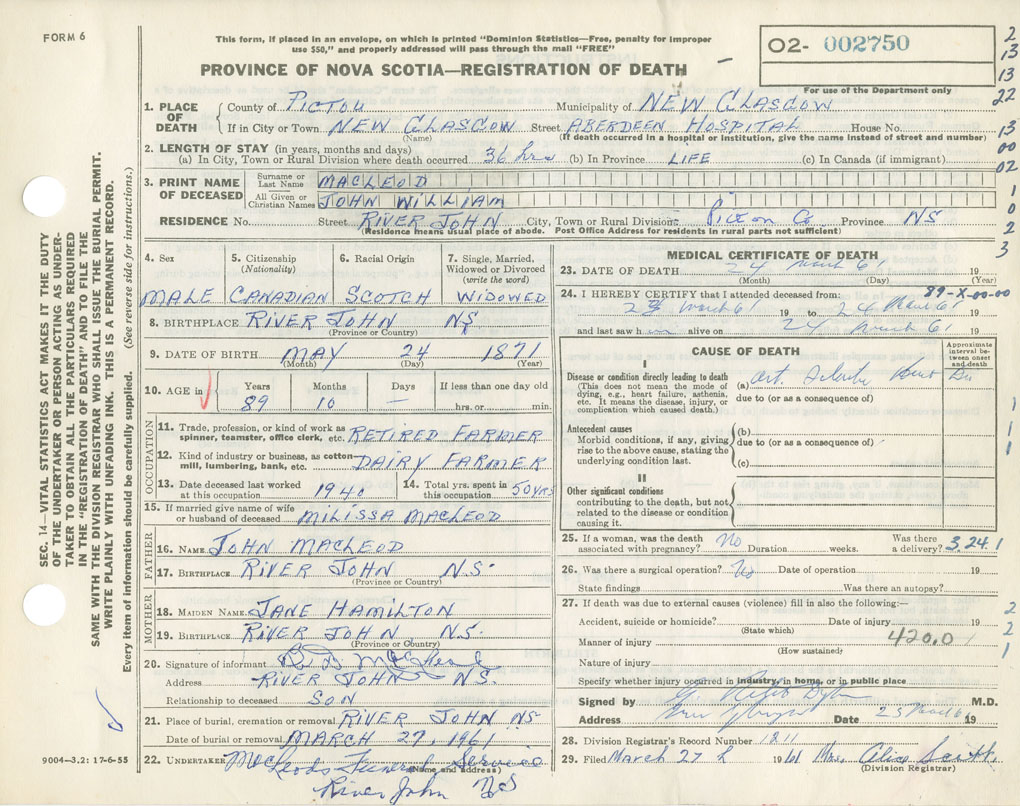 FORM 6
This form, if placed in an envelope, on which is printed "Dominion Statistics—Free, penalty for improper
use $50," and properly addressed will pass through the mail "FREE"
PROVINCE OF NOVA SCOTIA—REGISTRATION OF DEATH
O2- 002750
For use of the Department only
2
13
13
22
13
00
02
1
0
2
3
1. PLACE OF DEATH
County of PICTOU Municipality of NEW GLASGOW
If in City or Town NEW GLASGOW Street ABERDEEN HOSPITAL House No.
(Name) (If death occurred in a hospital or institution, give the name instead of street and number)
2. LENGTH OF STAY (in years, months and days)
(a) In City, Town or Rural Division where death occurred 36 hrs (b) In Province LIFE (c) In Canada (if immigrant)
3. PRINT NAME OF DECEASED
Surname or Last Name MACLEOD
All Given or Christian Names JOHN WILLIAM
RESIDENCE No. Street RIVER JOHN City, Town or Rural Division Pictou Co Province NS
(Residence means usual place of abode. Post Office Address for residents in rural parts not sufficient)
4. Sex
MALE
5. Citizenship (Nationality)
CANADIAN
6. Racial Origin
SCOTCH
7. Single, Married, Widowed or Divorced (write the word)
WIDOWED
8. BIRTHPLACE RIVER JOHN NS
(Province or Country)
9. DATE OF BIRTH MAY 24 1871
(Month) (Day) (Year)
10. AGE in
Years 89
Months 10
Days —
If less than one day old
hrs. or min.
OCCUPATION
11. Trade, profession, or kind of work as spinner, teamster, office clerk, etc. RETIRED FARMER
12. Kind of industry or business, as cotton mill, lumbering, bank, etc. DAIRY FARMER
13. Date deceased last worked at this occupation 1940
14. Total yrs. spent in this occupation 50 YRS
15. If married give name of wife or husband of deceased MILISSA MACLEOD
FATHER
16. NAME JOHN MACLEOD
17. BIRTHPLACE RIVER JOHN N.S.
(Province or Country)
MOTHER
18. MAIDEN NAME JANE HAMILTON
19. BIRTHPLACE RIVER JOHN N.S.
(Province or Country)
20. Signature of informant
Address RIVER JOHN N.S.
Relationship to deceased SON
21. Place of burial, cremation or removal RIVER JOHN NS
Date of burial or removal MARCH 27, 1961
22. UNDERTAKER McLeods Funeral Service
(Name and address)
River John N S
MEDICAL CERTIFICATE OF DEATH
23. DATE OF DEATH 24 March 61 19
(Month) (Day) (Year)
24. I HEREBY CERTIFY that I attended deceased from: 89-X-00-00
23 March 61 19 to 24 March 61 19
and last saw him alive on 24 March 61 19
CAUSE OF DEATH
Approximate interval between onset and death
I
Disease or condition directly leading to death
(This does not mean the mode of dying, e.g., heart failure, asthenia, etc. It means the disease, injury, or complication which caused death.)
(a)
due to (or as a consequence of)
Antecedent causes
Morbid conditions, if any, giving rise to the above cause, stating the underlying condition last.
(b)
due to (or as a consequence of)
(c)
II
Other significant conditions
contributing to the death, but not related to the disease or condition causing it.
1
1
1
25. If a woman, was the death associated with pregnancy? No Duration weeks. Was there a delivery? 3.24.1
26. Was there a surgical operation? No Date of operation 19
State findings Was there an autopsy?
27. If death was due to external causes (violence) fill in also the following:—
Accident, suicide or homicide? Date of injury 19
(State which)
Manner of injury 420.0
(How sustained)
Nature of injury
Specify whether injury occurred in industry, in home, or in public place
2
2
1
Signed by M.D.
Address Date 25 March 61 19
28. Division Registrar's Record Number 1811
29. Filed March 27 1961 Mrs. Alice
(Division Registrar)
9004—3.2: 17-6-55
SEC. 14—VITAL STATISTICS ACT MAKES IT THE DUTY
OF THE UNDERTAKER OR PERSON ACTING AS UNDER-
TAKER TO OBTAIN ALL THE PARTICULARS REQUIRED
IN THE "REGISTRATION OF DEATH" AND TO FILE THE
SAME WITH THE DIVISION REGISTRAR WHO SHALL ISSUE THE BURIAL PERMIT.
WRITE PLAINLY WITH UNFADING INK. THIS IS A PERMANENT RECORD.
Every item of information should be carefully supplied. (See reverse side for instructions.)